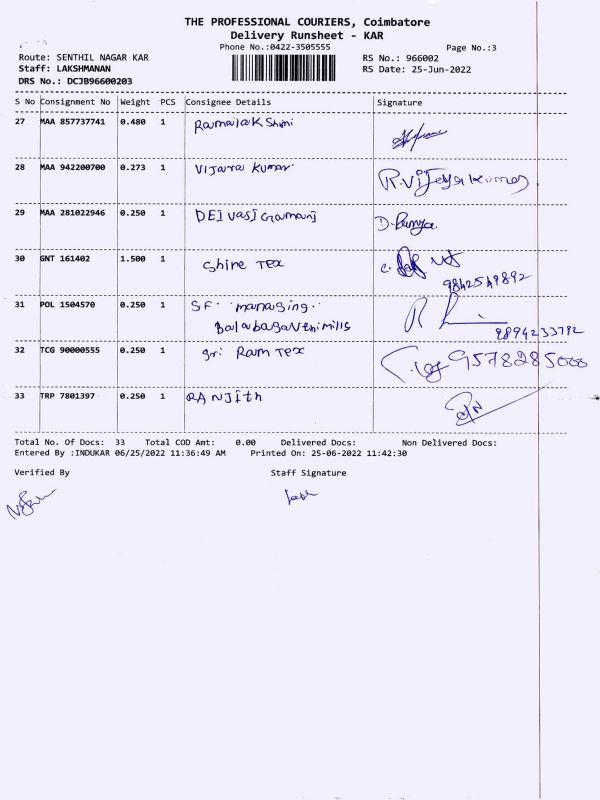 THE PROFESSIONAL COURIERS, Coimbatore
Delivery Runsheet - KAR
Phone No.:0422-3505555 Page No.:3
Route: SENTHIL NAGAR KAR RS No.: 966002
Staff: LAKSHMANAN RS Date: 25-Jun-2022
DRS No.: DCJB96600203
S No Consignment No Weight PCS Consignee Details Signature
27 MAA 857737741 0.480 1 Ramalakshmi
28 MAA 942200700 0.273 1 Vijaya Kumar R.Vijeyakumar
29 MAA 281022946 0.250 1 DEIVasiGamani D.
30 GNT 161402 1.500 1 Shine Tex
9842549892
31 POL 1504570 0.250 1 SF. managing..
9894233792
32 TCG 90000555 0.250 1 Sri Ram Tex 9578285000
33 TRP 7801397 0.250 1 RANJith
Total No. Of Docs: 33 Total COD Amt: 0.00 Delivered Docs: Non Delivered Docs:
Entered By :INDUKAR 06/25/2022 11:36:49 AM Printed On: 25-06-2022 11:42:30
Verified By Staff Signature